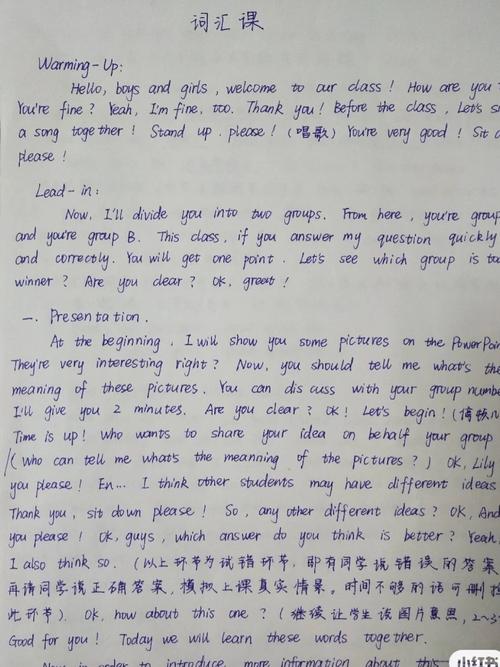 词汇课
Warming-Up:
Hello, boys and girls, welcome to our class! How are you
You're fine? Yeah, I'm fine, too. Thank you! Before the class, Let's
a song together! Stand up, please! (唱歌) You're very good! Sit
please!
Lead-in:
Now, I'll divide you into two groups. From here, you're group
and you're group B. This class, if you answer my question quickly
and correctly. You will get one point. Let's see which group is
winner? Are you clear? OK, great!
一. Presentation.
At the beginning, I will show you some pictures on the PowerPoin
They're very interesting right? Now, you should tell me what's the
meaning of these pictures. You can discuss with your group number
I'll give you 2 minutes. Are you clear? OK! Let's begin! (停顿
Time is up! Who wants to share your idea on behalf your group
(Who can tell me what's the meanning of the pictures?) OK, Lily
you please! En... I think other students may have different ideas
Thank you, sit down please! So, any other different ideas? OK, And
you please! OK, guys, which answer do you think is better? Yeah,
I also think so. (以上环节为试错环节, 即有同学说错误的答案
再请同学说正确答案, 模拟上课真实情景。时间不够的话可删
此环节). OK, how about this one? (继续让学生读图片意思, 2~3
Good for you! Today we will learn these words together.
Now in order to introduce more information about this
小红书